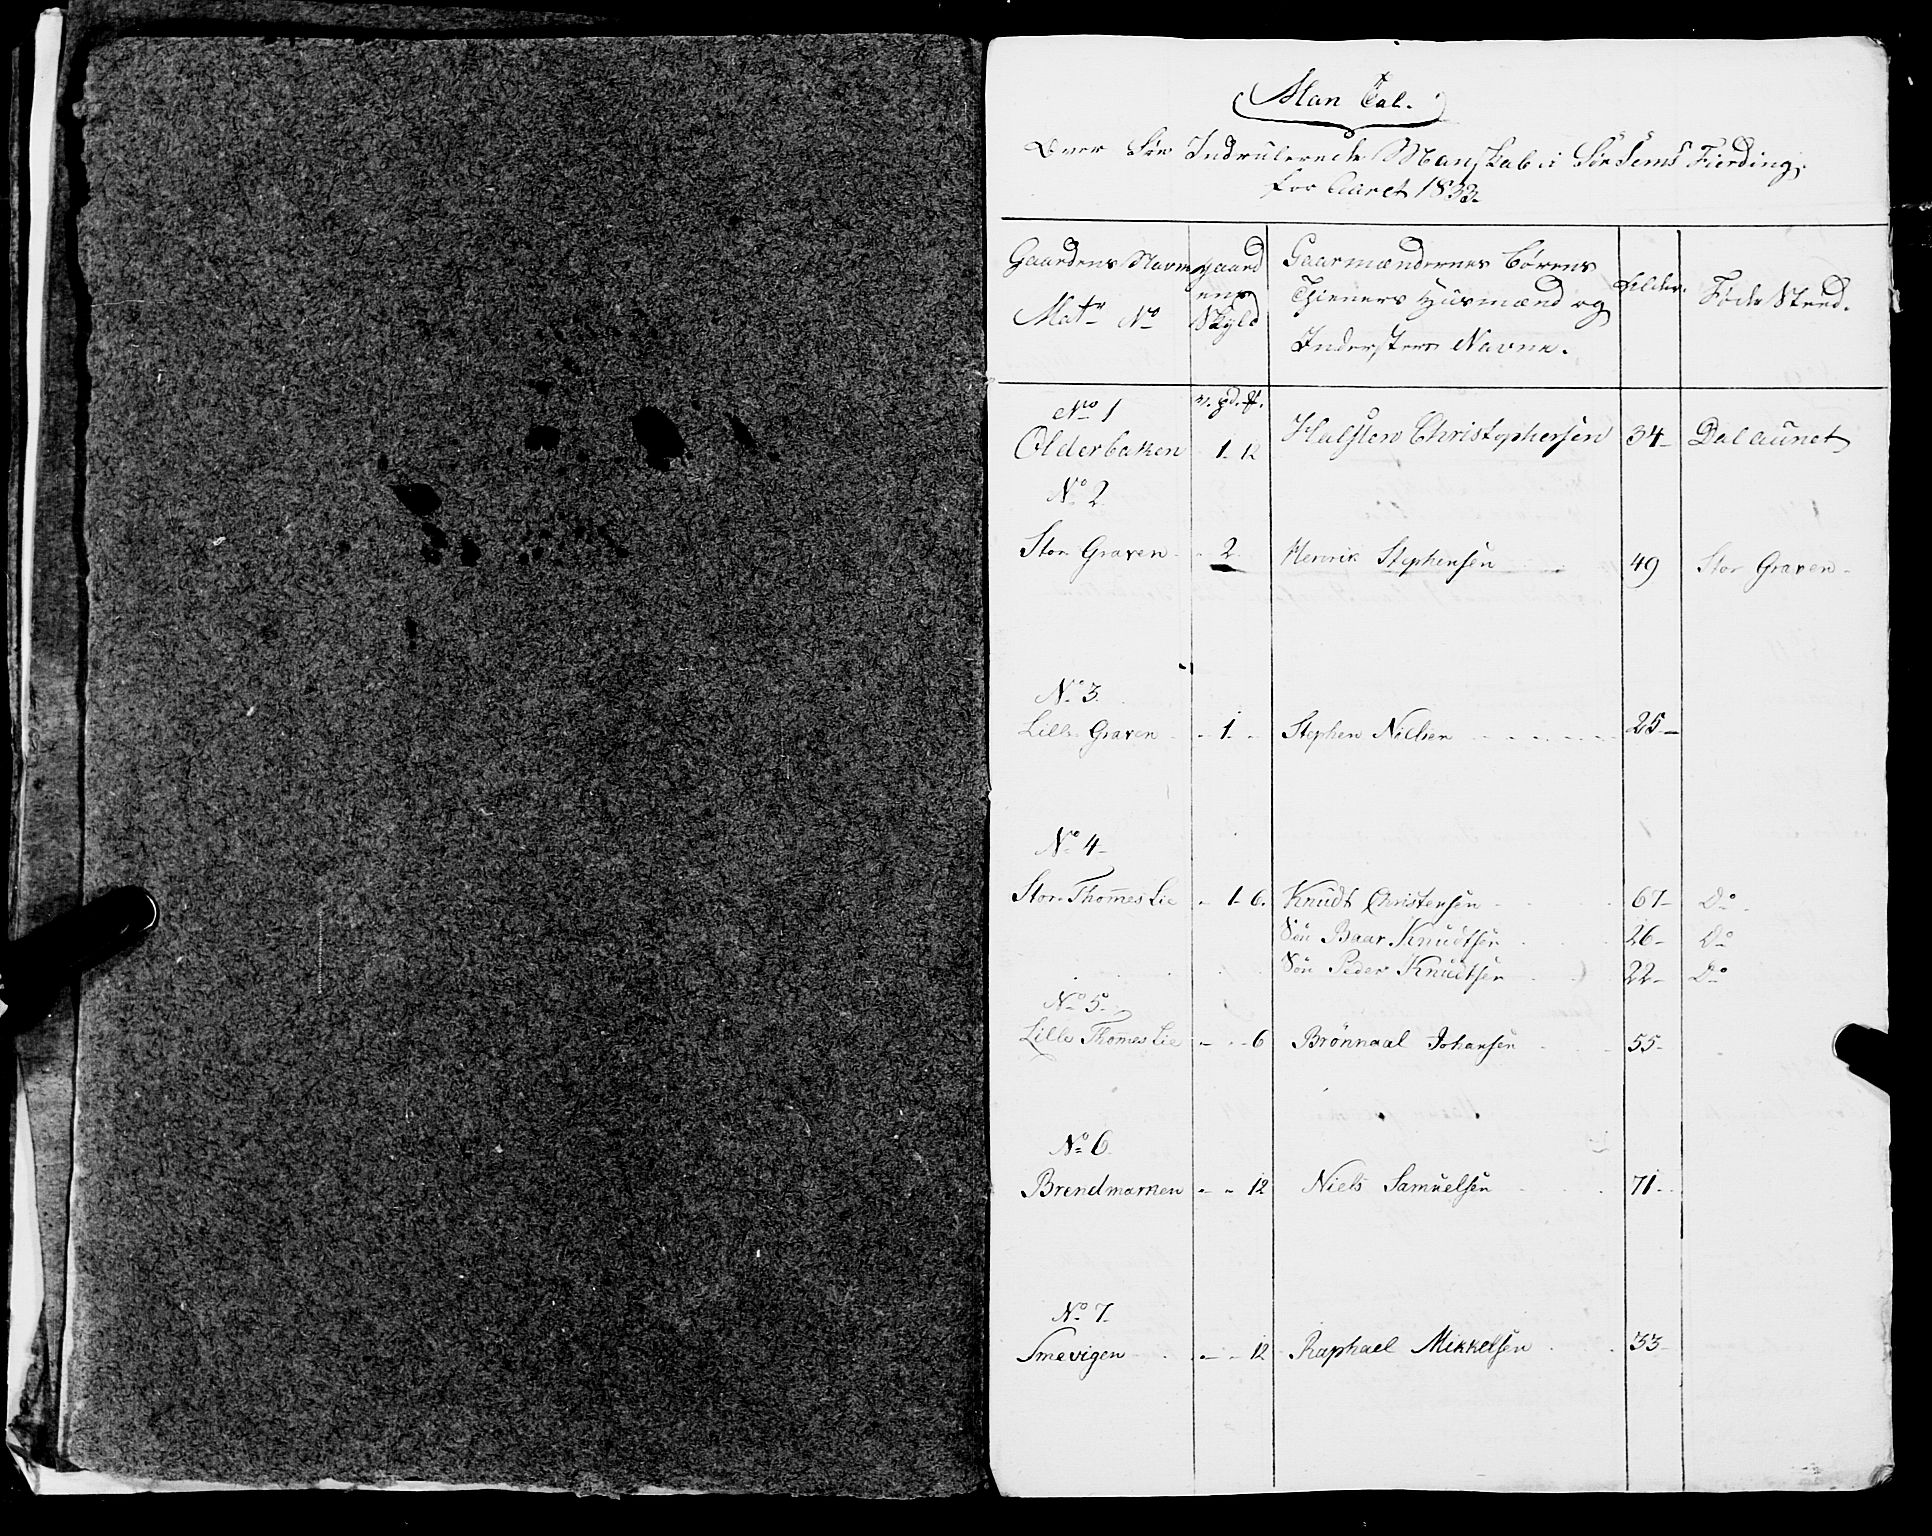 Man Tal.
Over Søe Indrulerede Manskab i Sør Sems Fierding,
for Aaret 1833.
Gaardens Navn Matr No
Gaardens Skyld
Gaarmændernes Børens Thieners Huusmænd og Indersters Navne.
Alder.
Føde Sted.
No 1 v. pd. #.
Olderbaken 1. 12 Halsten Christophersen 34 - Dalaunet
No 2
Stor Graven - - 2. Henrik Stephensen 49 Stor Graven -
No 3.
Lille Graven - - 1. - Stephen Nielsen - - - - - - 25 -
No 4 -
Stor Thommes Lie - 1 - 6. Knudt Christensen - 67 - Do -
Søn Baar Knudtsen 26 - Do
Søn Peder Knudtsen 22 - Do
No 5.
Lille Thommes Lie - - - 6 Brønnaal Johansen 55 -
No 6.
Brendmarken - - 12 Niels Samuelsen 71 -
No 7.
Smevigen - - 12 Raphael Mikkelsen 33 -